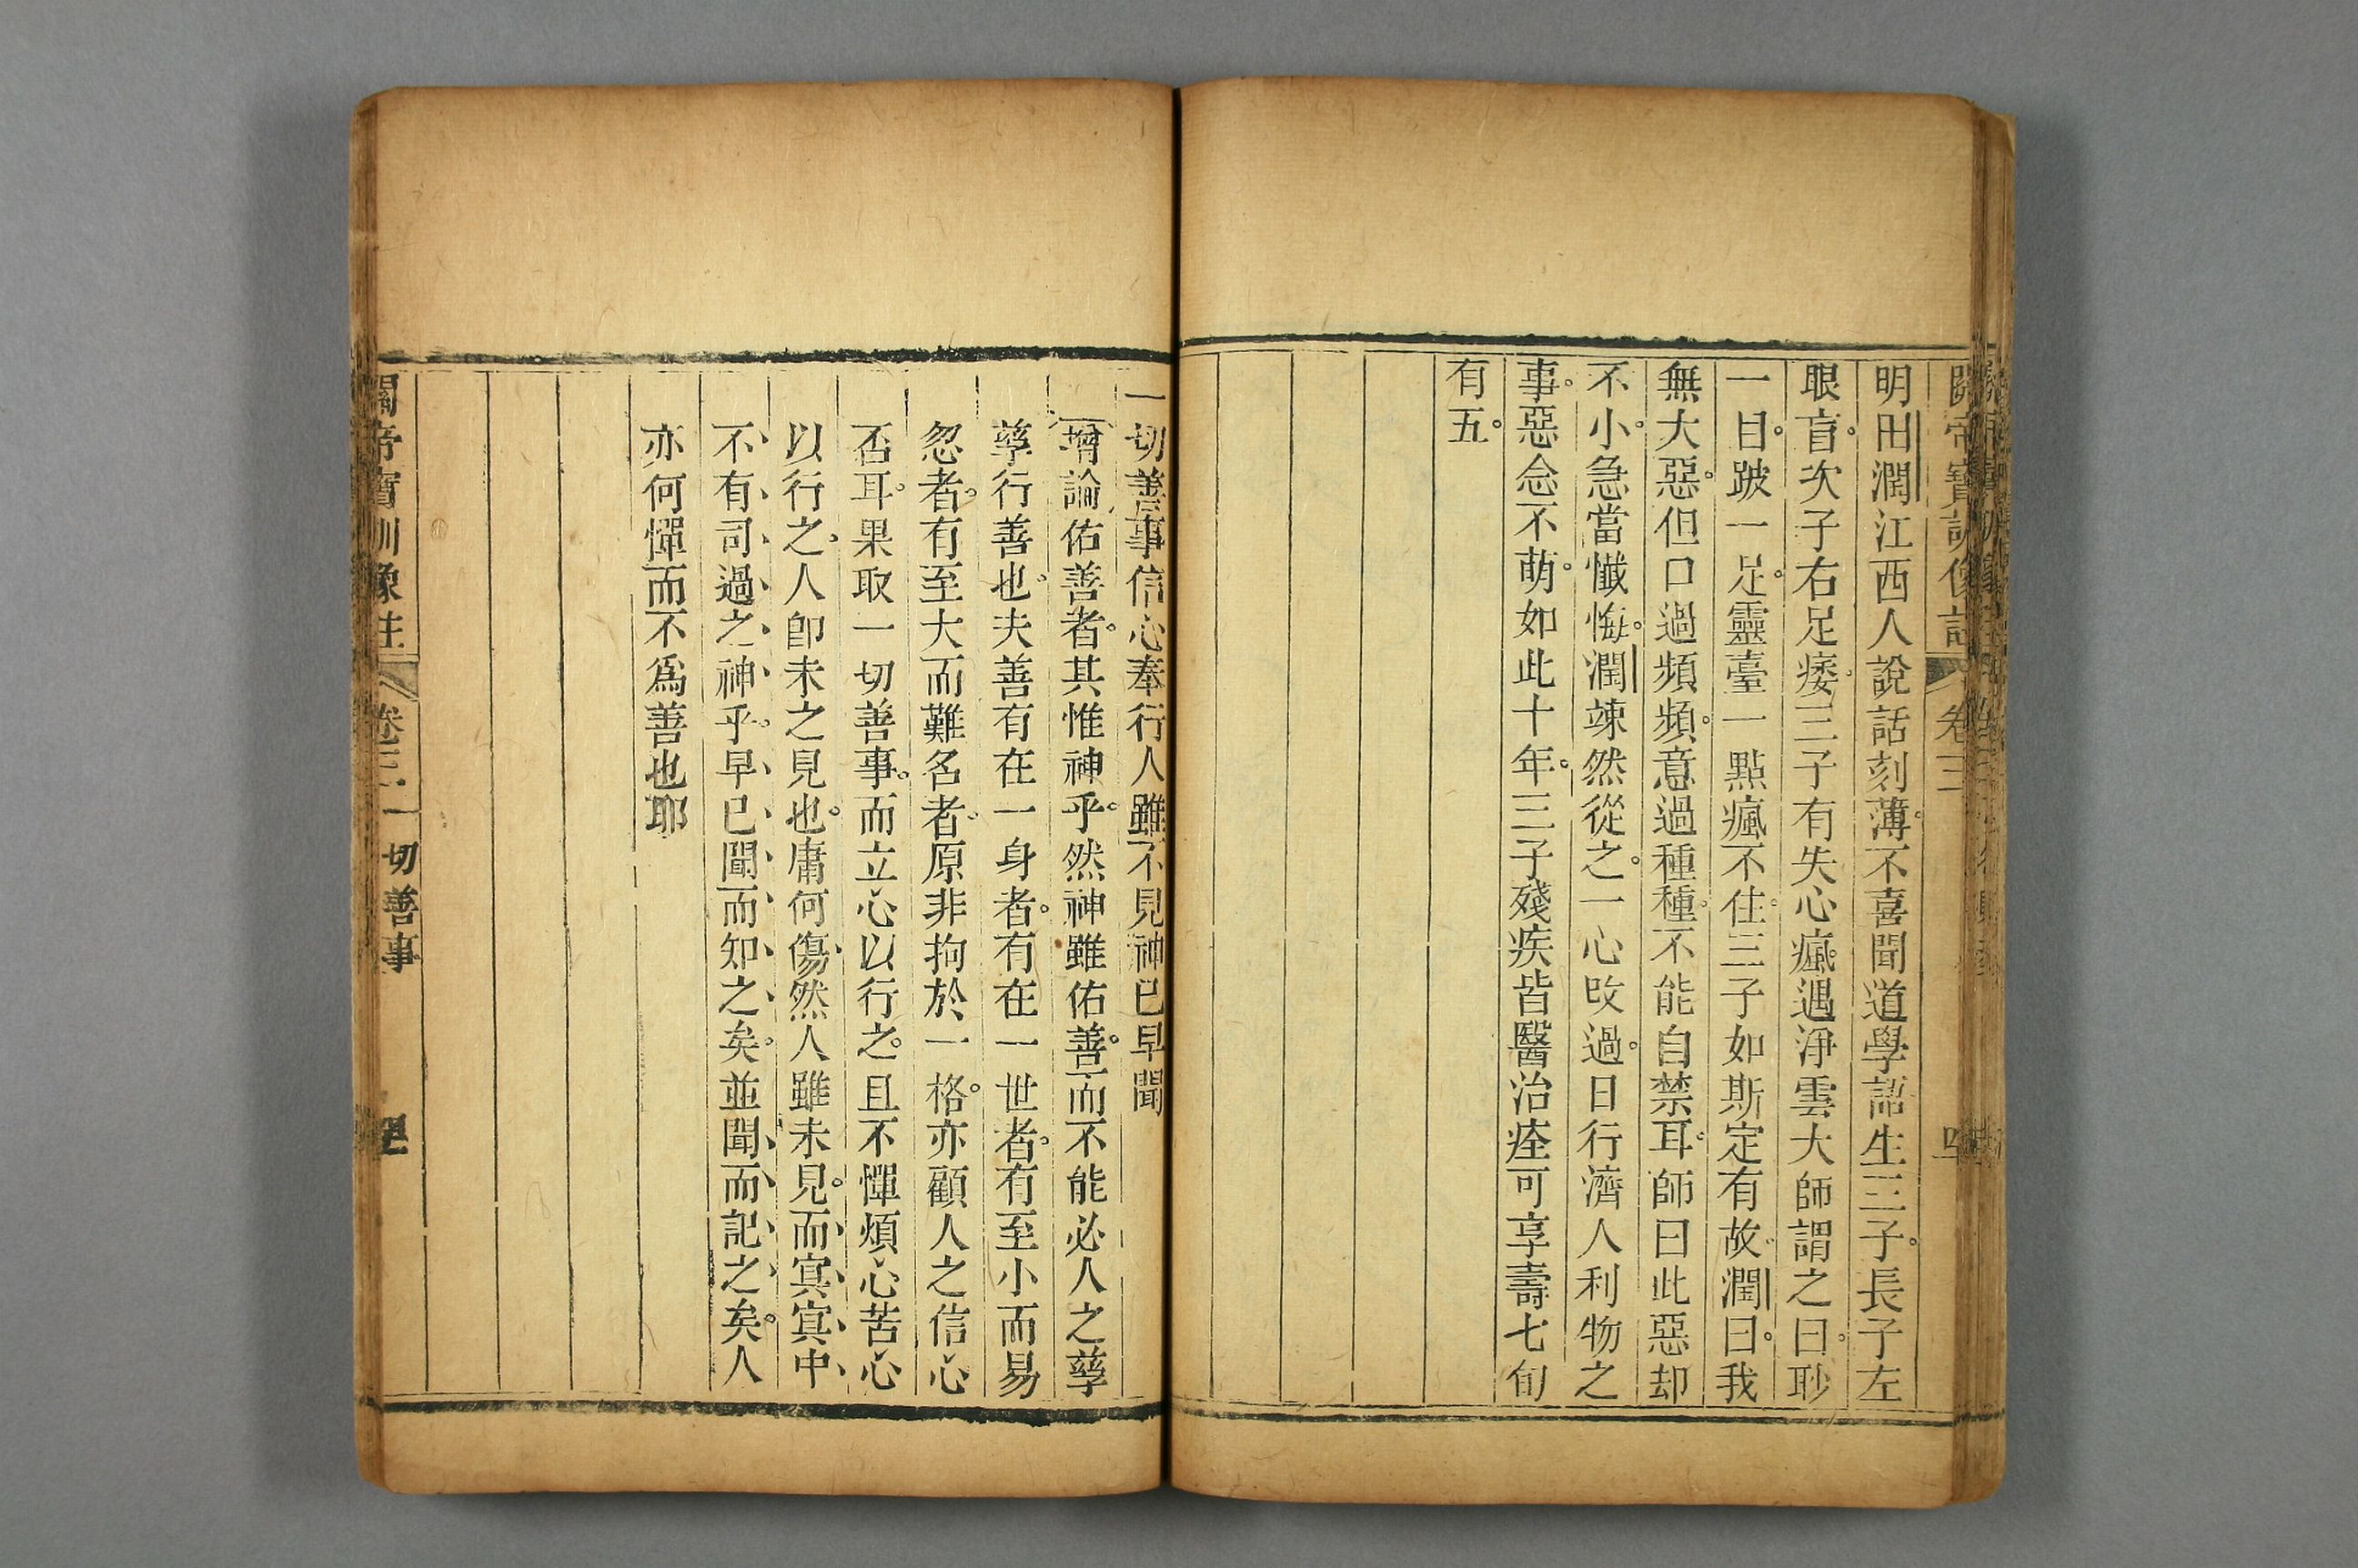 明田潤江西人說話刻薄不喜聞道學語生三子長子左
眼盲次子右足痿三子有失心瘋遇淨雲大師謂之曰眇
一目跛一足靈臺一點瘋不住三子如斯定有故潤曰我
無大惡但口過頻頻意過種種不能自禁耳師曰此惡却
不小急當懺悔潤竦然從之一心攺過日行濟人利物之
事惡念不萌如此十年三子殘疾皆醫治痊可享壽七旬
有五
一切善事信心奉行人雖不見神已早聞
增論佑善者其惟神乎然神雖佑善而不能必人之孳
孳行善也夫善有在一身者有在一世者有至小而易
忽者有至大而難名者原非拘於一格亦顧人之信心
否耳果取一切善事而立心以行之且不憚煩心苦心
以行之人卽未之見也庸何傷然人雖未見而冥冥中
不有司過之神乎早已聞而知之矣並聞而記之矣人
亦何憚而不爲善也耶
關帝寶訓像註 卷三 一切善事